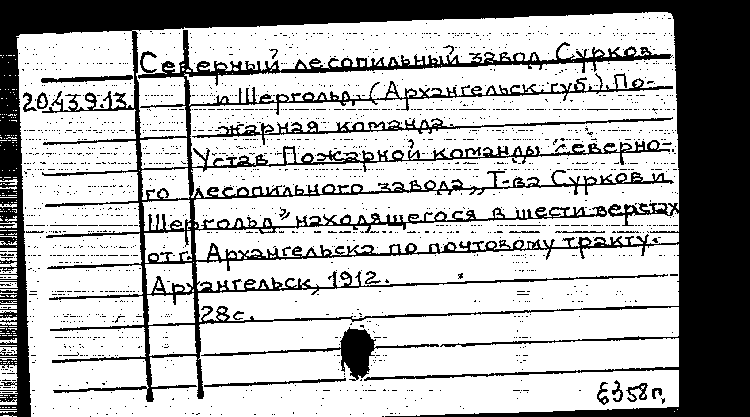 Северный лесопильный завод Сурков
20.43.9.13. и Шергольд, (Архангельск. губ.). По-
жарная команда.
Устав Пожарной команды северно-
го лесопильного завода „Т-ва Сурков и
Шергольд" находящегося в шести верстах
от г. Архангельска по почтовому тракту.
Архангельск, 1912.
28с.